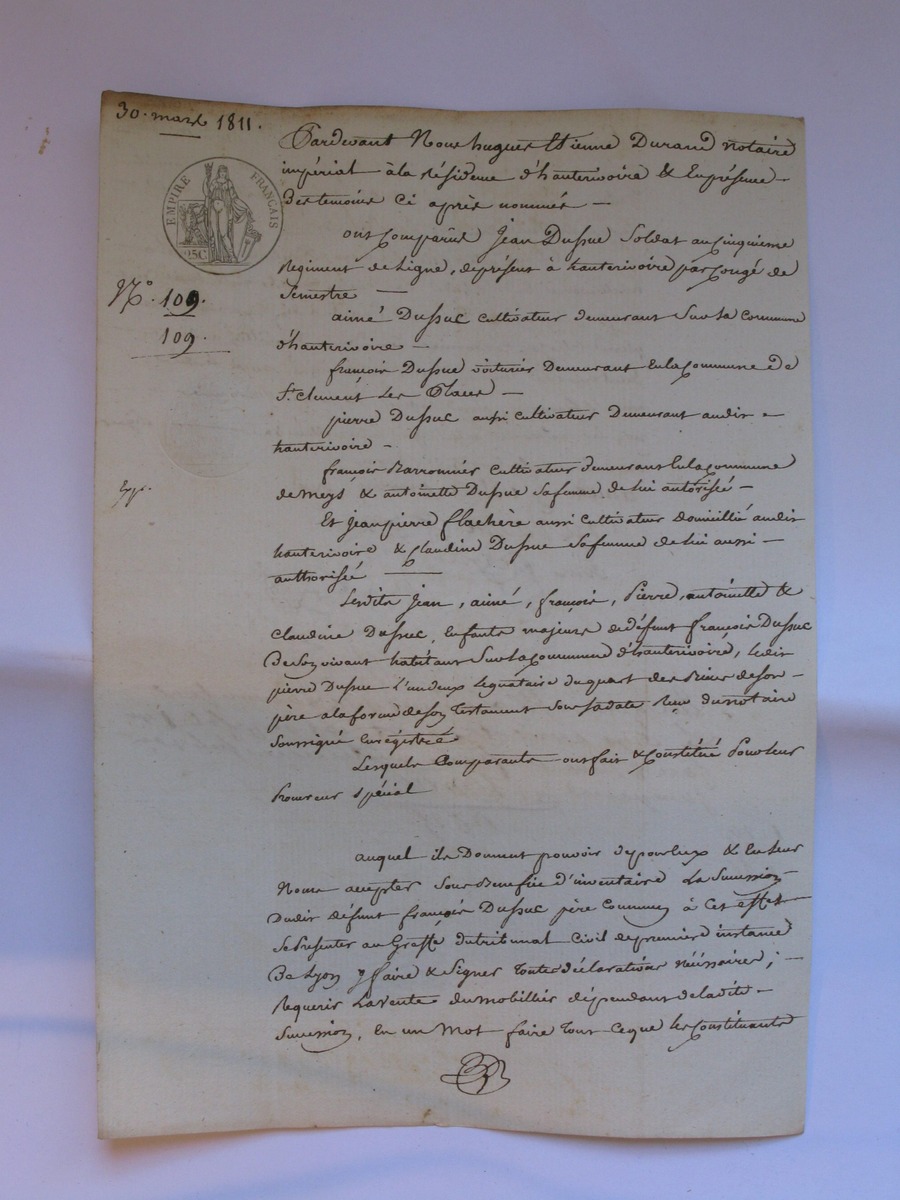 30. mars 1811.
EMPIRE FRANÇAIS
25C
N.° 109.
109.
Exp.
Pardevant Nous hugues Etienne Durand notaire
impérial à la résidence d'hauterivoire & En présence
Des temoins Ci après nommés —
ont Comparus Jean Dussuc Soldat au Cinquieme
Regiment de Ligne, de présent à hauterivoire par Congé de
Semestre —
aimé Dussuc cultivateur demeurant Sur la Commune
d'hauterivoire —
françois Dussuc voiturier Demeurant En la Commune de
St. Clement Les Places —
pierre Dussuc aussi Cultivateur Demeurant audit
hauterivoire —
françois Barronnier Cultivateur demeurant En la Commune
de meys & antoinette Dussuc Sa femme de Lui autorisée —
Et Jean pierre flachère aussi Cultivateur domicilié audit
hauterivoire & Claudine Dussuc Sa femme de Lui aussi —
authorisée —
Lesdits Jean, aimé, françois, Pierre, antoinette &
Claudine Dussuc, Enfants majeurs de défunt françois Dussuc
De Son vivant habitant Sur la Commune d'hauterivoire, Ledit
pierre Dussuc L'un deux Legataire du quart des Biens de Son
père a la forme de Son Testament Sous Sa date Reçu du notaire
Soussigné Enregistré
Lesquels Comparants ont fait & Constitué Pour Leur
Procureur Spécial
auquel ils Donnent pouvoir de pour Eux & En Leur
Noms accepter Sous Benefice d'inventaire La Succession
Dudit défunt françois Dussuc père Commun, à Cet effet
Se Présenter au Greffe du tribunal Civil de premiere instance
De Lyon y faire & Signer Toutes déclarations Nécessaires ; —
Requerir La vente du mobillier dépendant de la dite
Succession, En un Mot faire Tout Ce que les Constituants